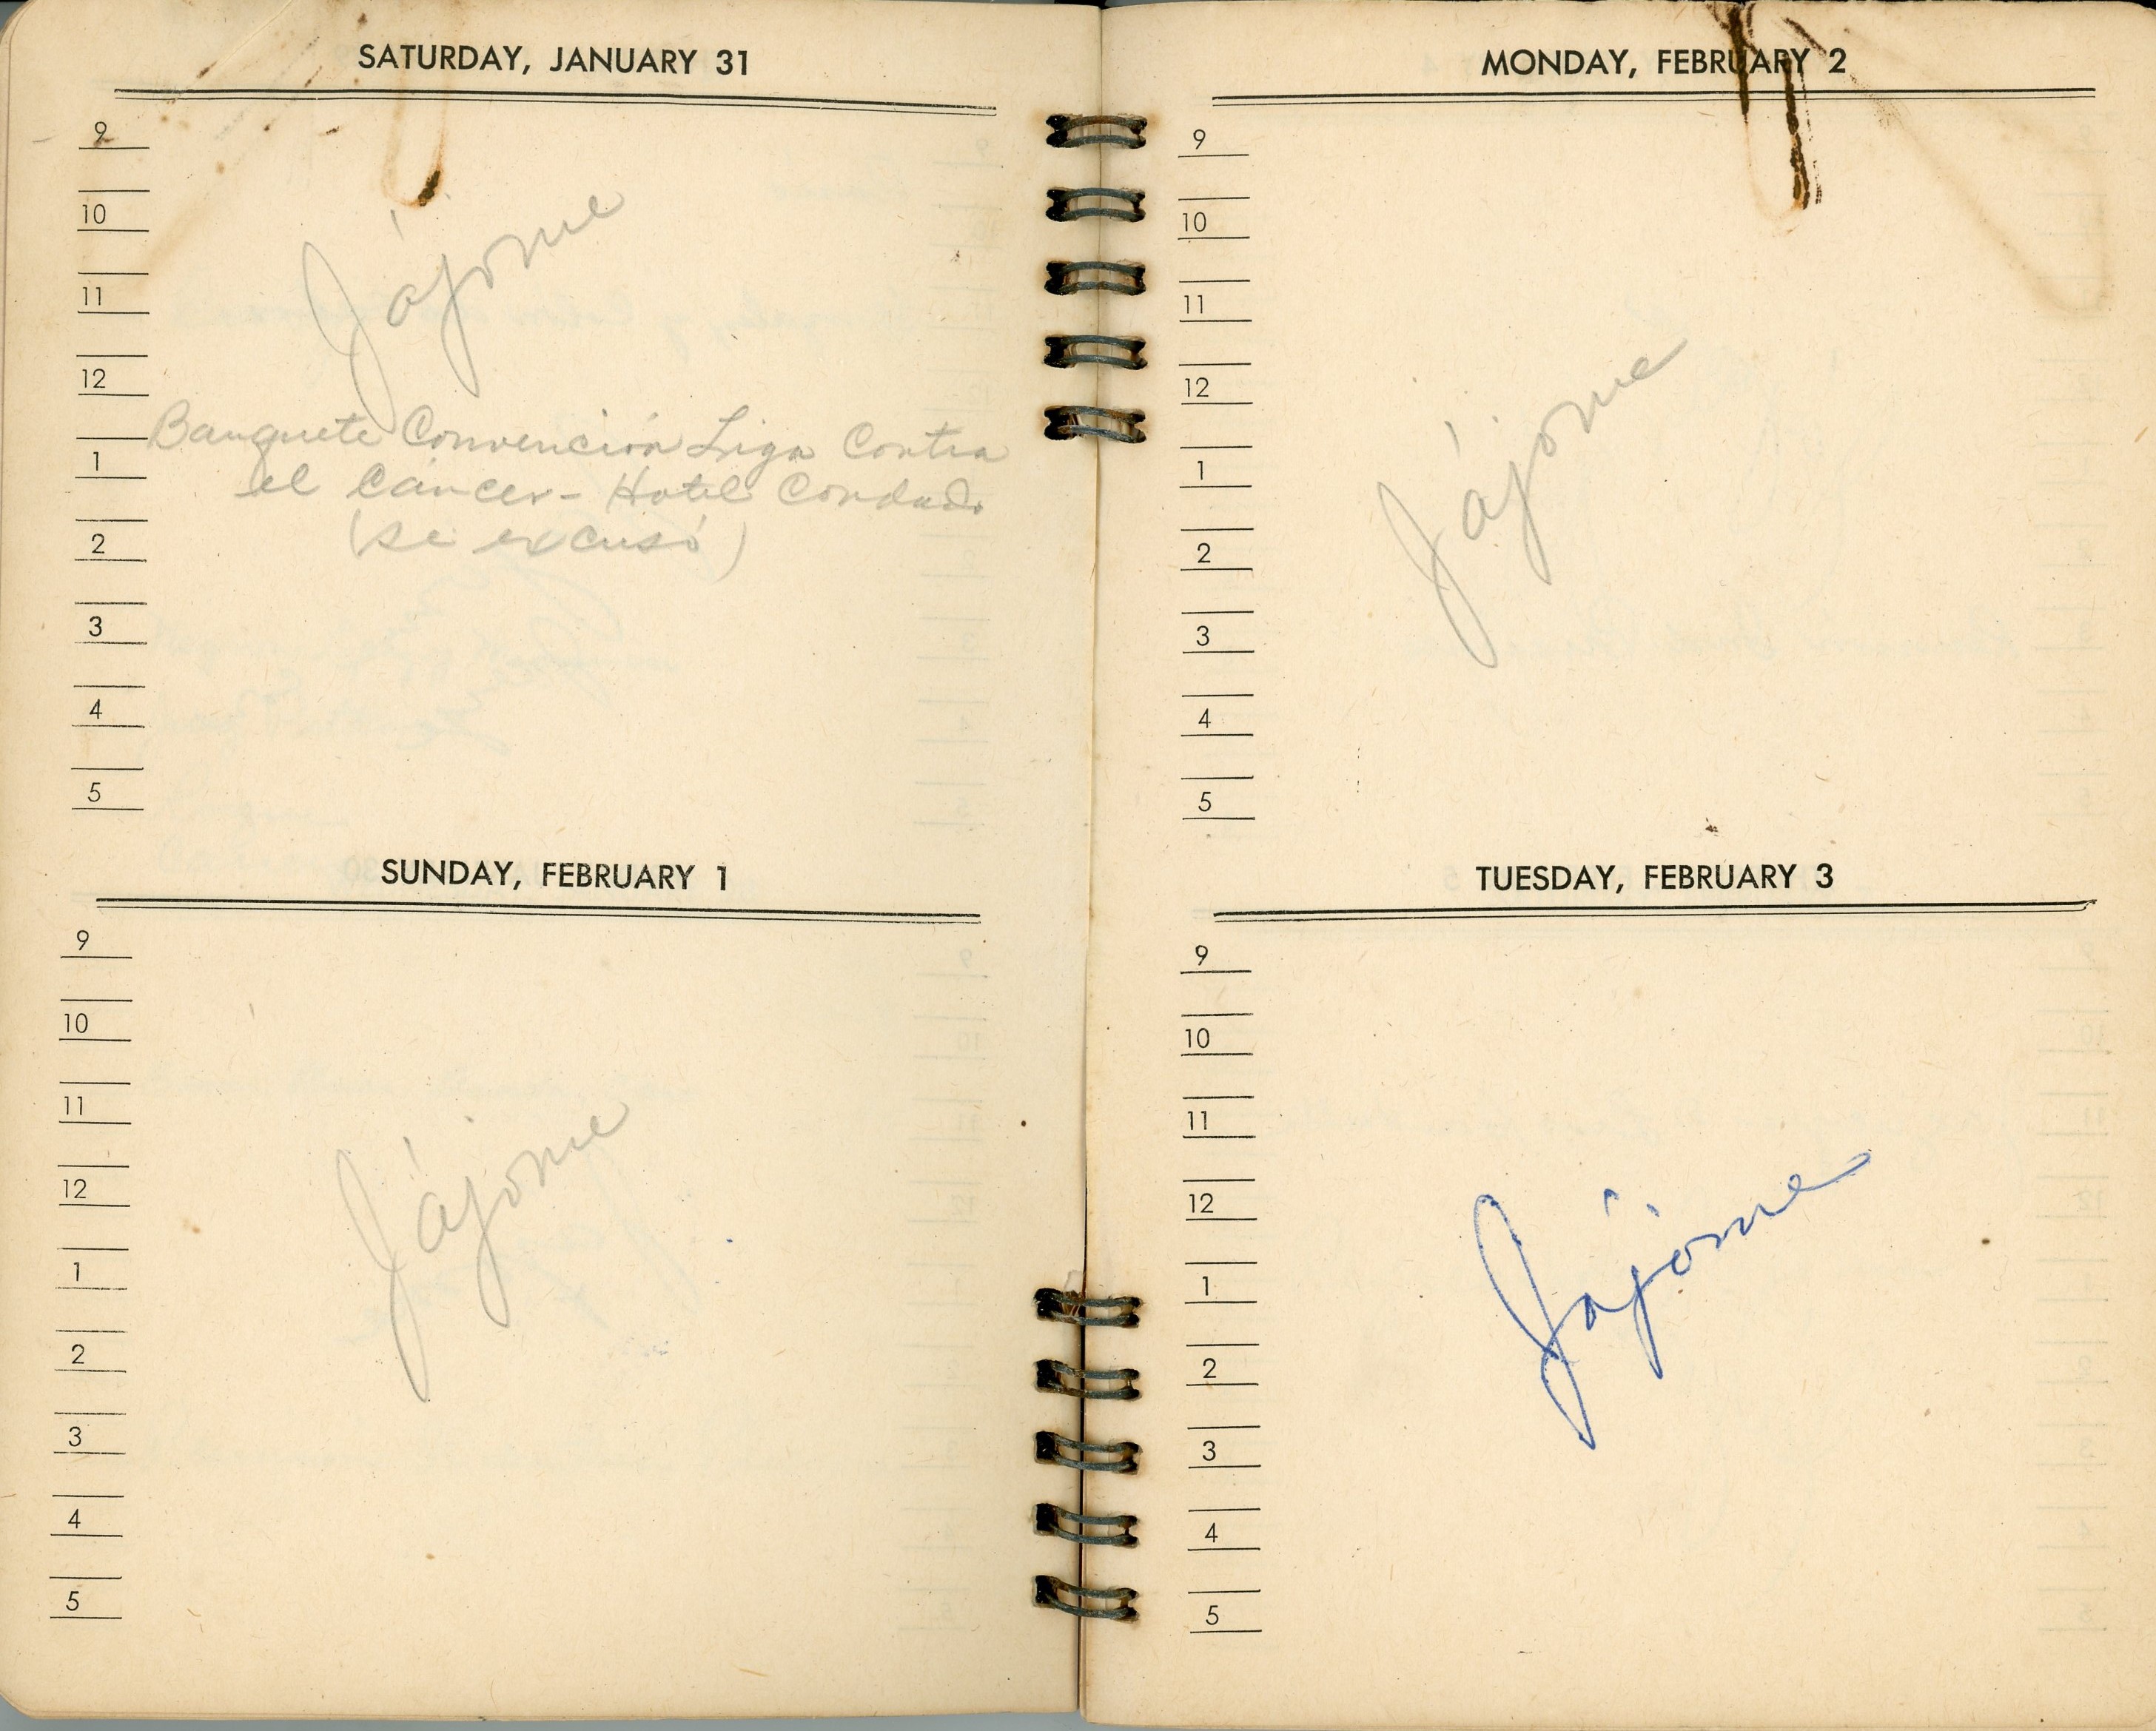 SATURDAY, JANUARY 31
9
10
Jájome
11
12
Banquete Convención Liga Contra
1
el Cáncer - Hotel Condado
(se excusó)
2
3
4
5
SUNDAY, FEBRUARY 1
9
10
11
Jájome
12
1
2
3
4
5
MONDAY, FEBRUARY 2
9
10
11
12
Jájome
1
2
3
4
5
TUESDAY, FEBRUARY 3
9
10
11
12
Jájome
1
2
3
4
5